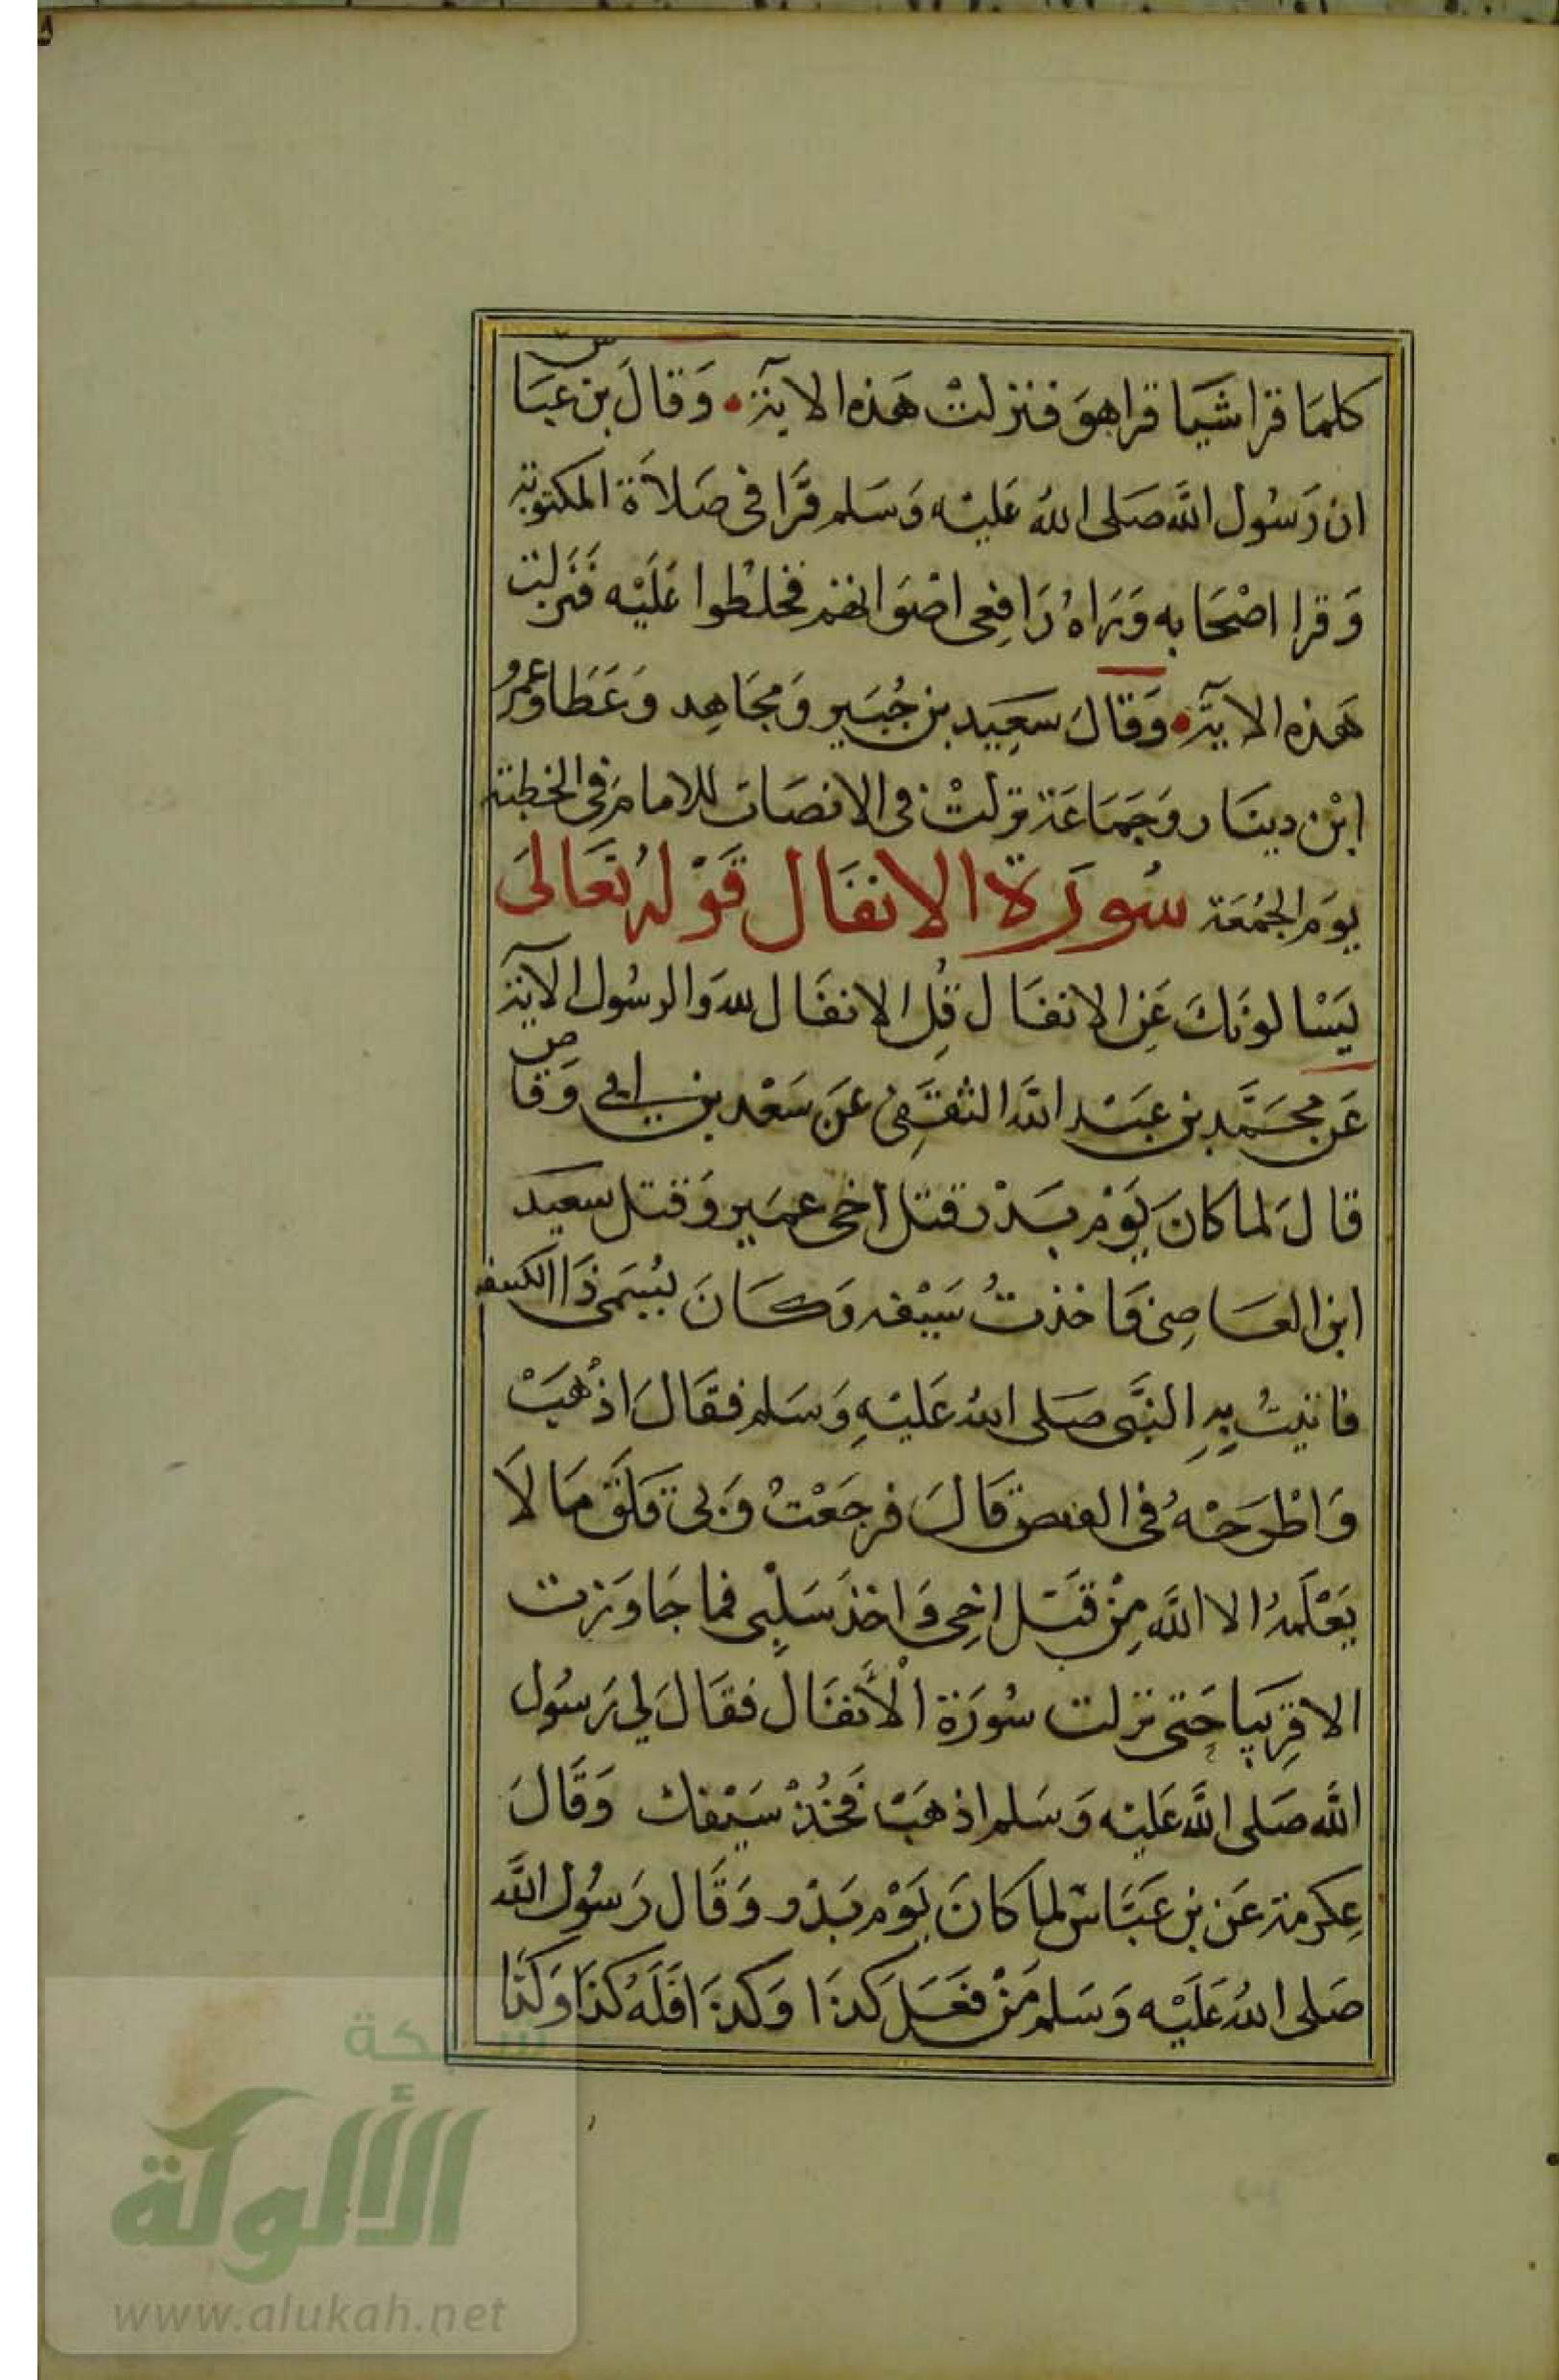 كلمَا قرا شَيَا قراهوَ فنزلتْ هَذه الايَة وَقالَ بن عبَاس
ان رَسُول اللَّه صَلى اللهُ عَليْه وَسَلم قَرَا فى صَلاَة المكتوبة
وَقرا اصْحَابه وَرَاهُ رَافِعى اصْوَاتهم فخلطُوا عَلَيْه فَنَزلت
هَذه الايَة وَقَالَ سَعِيد بن جُبَير وَمجَاهِد وَعَطَا وعمرُو
ابْن دينَار وَجَمَاعَة نزلتْ فى الانصَات للامامِ فى الخطبَة
يومَ الجُمُعَة سُورَة الانفَال قَوْلهُ تعَالىَ
يَسْالونَكَ عَنِ الانفَال قُلِ الانفَال لله وَالرسُول الآية
عَن محَمَّد بن عبَيْد اللَّه الثقَفِى عَن سَعْد بن ابى وَقاص
قالَ لما كانَ يَوْم بَدْر قتل اخى عمَير وَقتل سعيد
ابن العَاصِى فَاخذتُ سَيْفه وَكَانَ يُسَمى ذَا الكسفه
فاتيتُ بِهِ النَّبى صَلى اللهُ عَليْهِ وَسَلم فقَالَ اذْهَبْ
وَاطْرَحْهُ فى القبض قَالَ فرجَعْتْ وَبى قَلَق مَا لاَ
يَعْلَمهُ الا اللَّه مِنْ قتَل اخِى وَاخذ سَلبِى فما جَاوَزت
الا قرِيبَا حَتى نزلت سُورَة الْأَنفَال فقَالَ لي رَسُول
اللَّه صَلى اللَّه عَليْه وَسَلم اذهَبْ فَخُذْ سَيْفك وَقَالَ
عِكرمَة عَن بن عَبَّاس لما كانَ يَوْم بَدْر وَقَال رَسُول اللَّه
صَلى اللهُ عَلَيْه وَسَلم مَنْ فعَلَ كذَا وَكذَا فَلَهُ كذَا وَكَذَا
شبكة
الألوكة
www.alukah.net